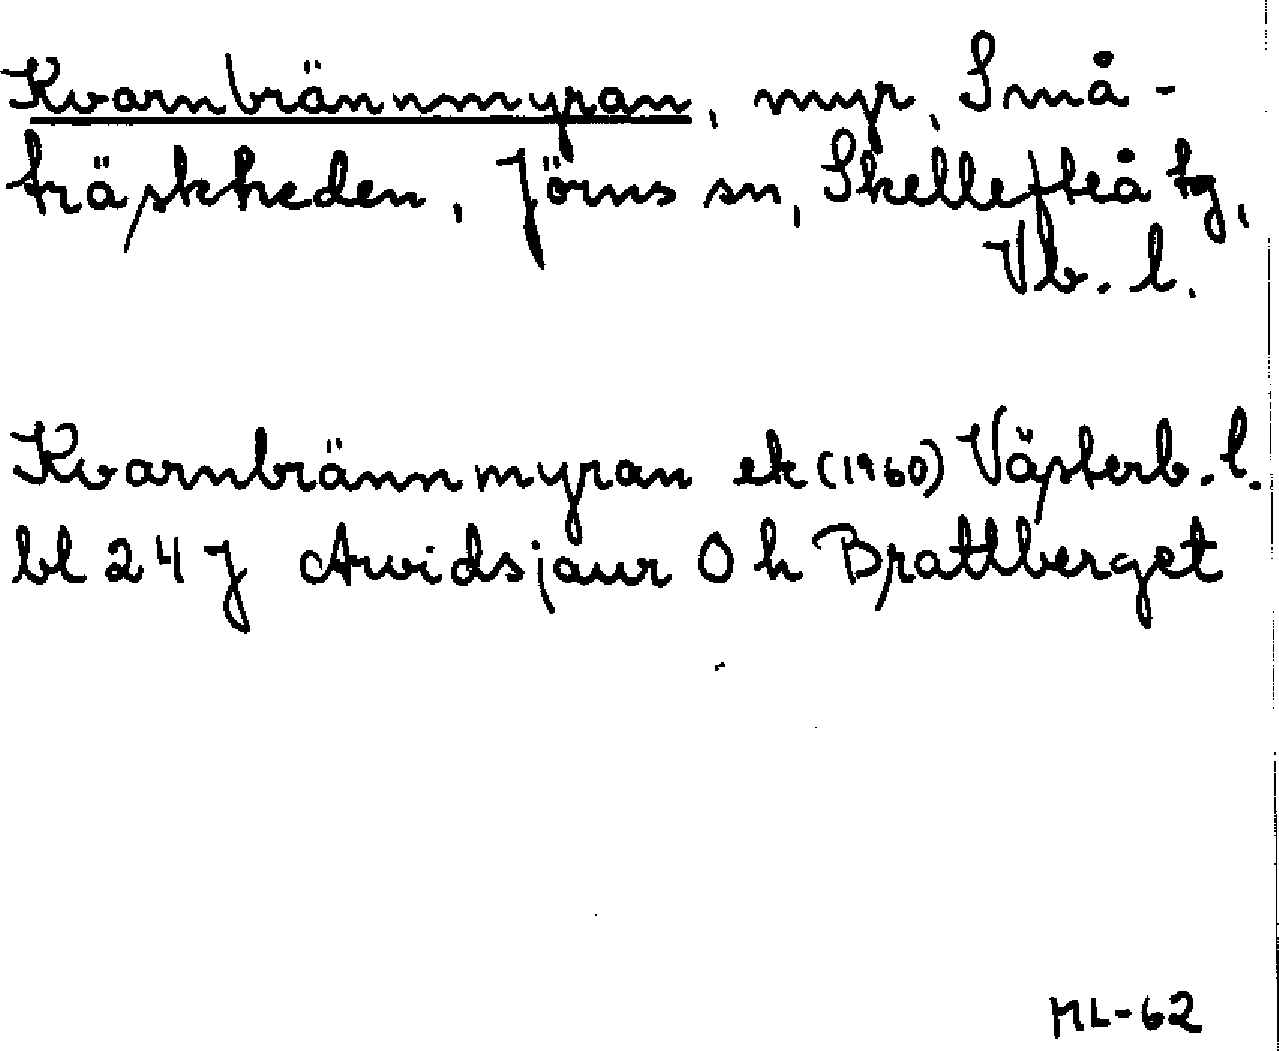 Kvarnbrännmyran, myr, Små-
träskheden, Jörns sn, Skellefteå tg,
Vb. l.
Kvarnbrännmyran ek (1960) Västerb. l.
bl 24 J Arvidsjaur O h Brattberget
ML-62